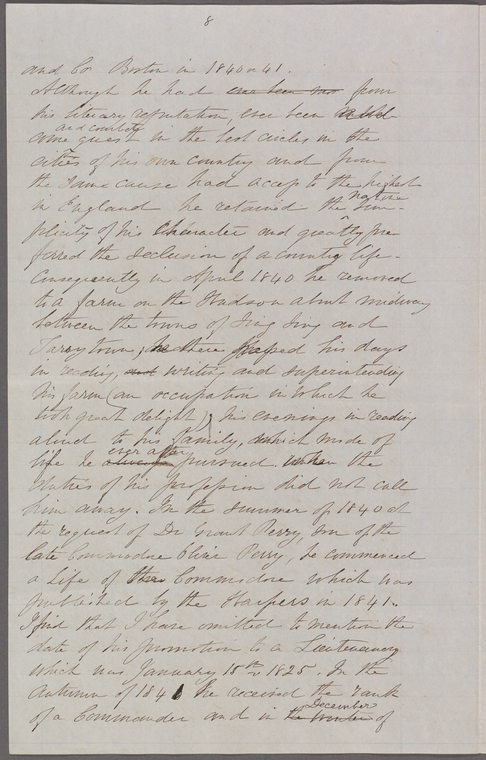 8
and Co Boston in 1840 or 41.
Although he had from
his literary reputation, ever been a wel
come guest in the best circles in the
and country
cities of his own country and from
the same cause had access to the highest
in England he retained the native sim-
plicity of his Character and greatly pre
ferred the seclusion of a country life -
Consequently in April 1840 he removed
to a farm on the Hudson about midway
between the towns of Sing Sing and
Tarrytown, he there passed his days
in reading, and writing and superintending
his farm (an occupation in which he
took great delight), his evenings in reading
aloud to his family, which mode of
life he ever after pursued when the
duties of his profession did not call
him away. In the summer of 1840 at
the request of Dr Grant Perry, son of the
late Commodore Oliver Perry, he commenced
a Life of the Commodore which was
published by the Harpers in 1841.
I find that I have omitted to mention the
date of his promotion to a Lieutenancy
which was January 15th 1825. In the
Autumn of 1841 he received the rank
of a Commander and in the Winter December of